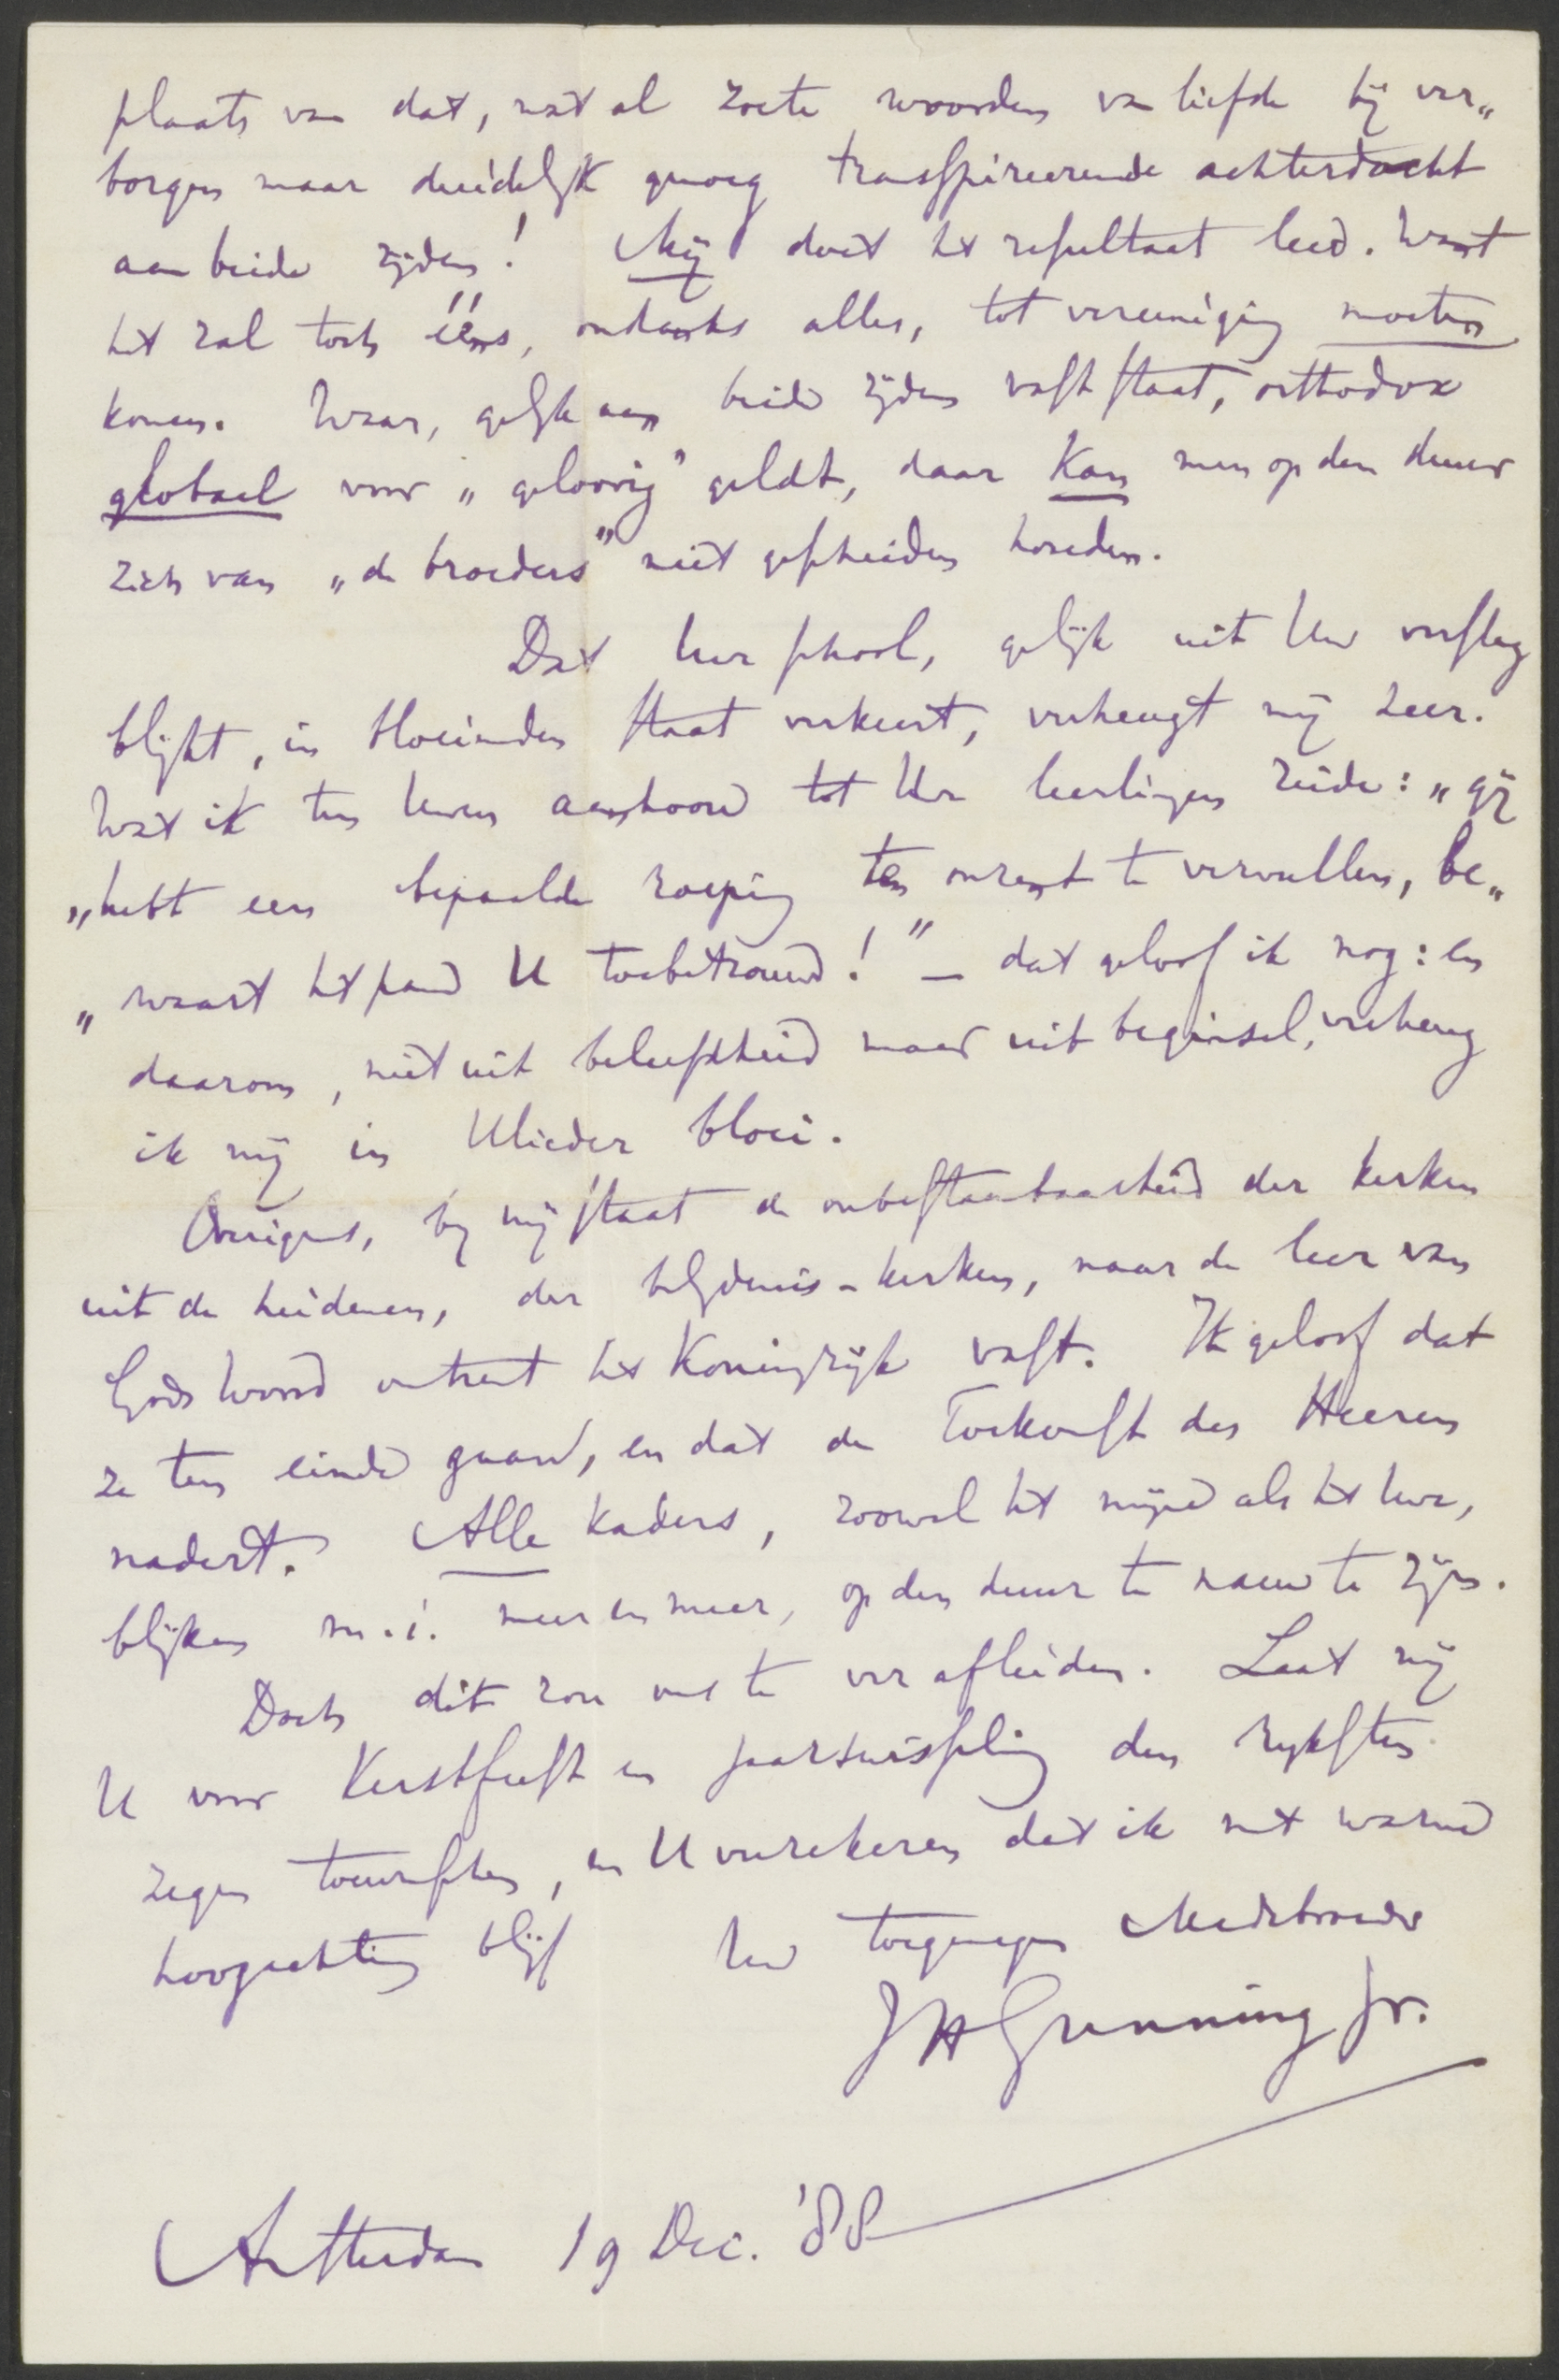 plaats van dat, wat al zoete woorden van liefde bij ver„
borgen maar duidelijk genoeg transpireerende achterdocht
aan beide zijden! Mij doet het resultaat leed. Want
het zal toch ééns, ondanks alles, tot vereeniging moeten
komen. Waar, gelijk aan beide zijden vaststaat, orthodox
globaal voor „geloovig" geldt, daar kan men op den duur
zich van „de broeders" niet gescheiden houden.
Dat Uw school, gelijk uit Uw verslag
blijkt, in bloeienden staat verkeert, verheugt mij zeer.
Wat ik ten Uwen aanhoore tot Uw leerlingen zeide: „gij
„hebt een bepaalde roeping ten onzent te vervullen, be„
„waart het pand U toebetrouwd!" – dat geloof ik nog: en
daarom, niet uit beleefdheid maar uit beginsel, verheug
ik mij in Ulieder bloei.
Overigens, bij mij staat de onbestaanbaarheid der kerken
uit de heidenen, der belijdenis-kerken, naar de leer van
Gods Woord omtrent het Koningrijk vast. Ik geloof dat
ze ten einde gaan, en dat de Toekomst des Heeren
nadert. Alle kaders, zoowel het mijne als het Uwe,
blijken m.i. meer en meer, op den duur te nauw te zijn.
Doch dit zou ons te ver afleiden. Laat mij
U voor Kerstfeest en jaarwisseling den rijksten
zegen toewenschen, en U verzekeren dat ik met warme
hoogachting blijf Uw toegenegen Medebroeder
JHGunning Jr.
Amsterdam 19 Dec. '88